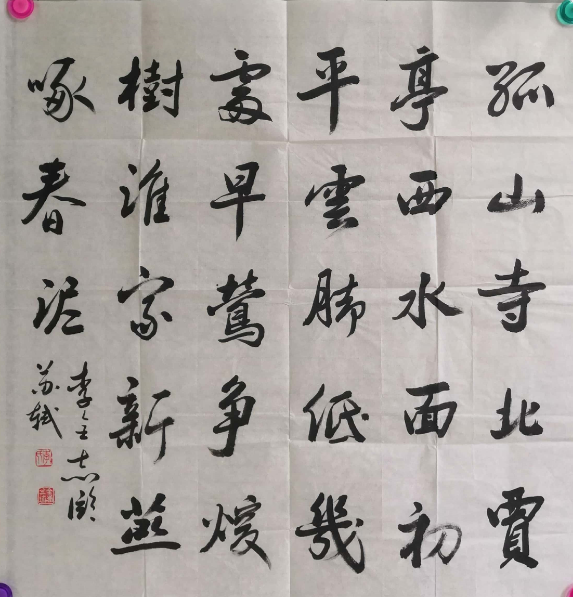 孤山寺北賈
亭西水面初
平雲脚低幾
處早鶯争煖
樹誰家新燕
啄春泥
苏轼